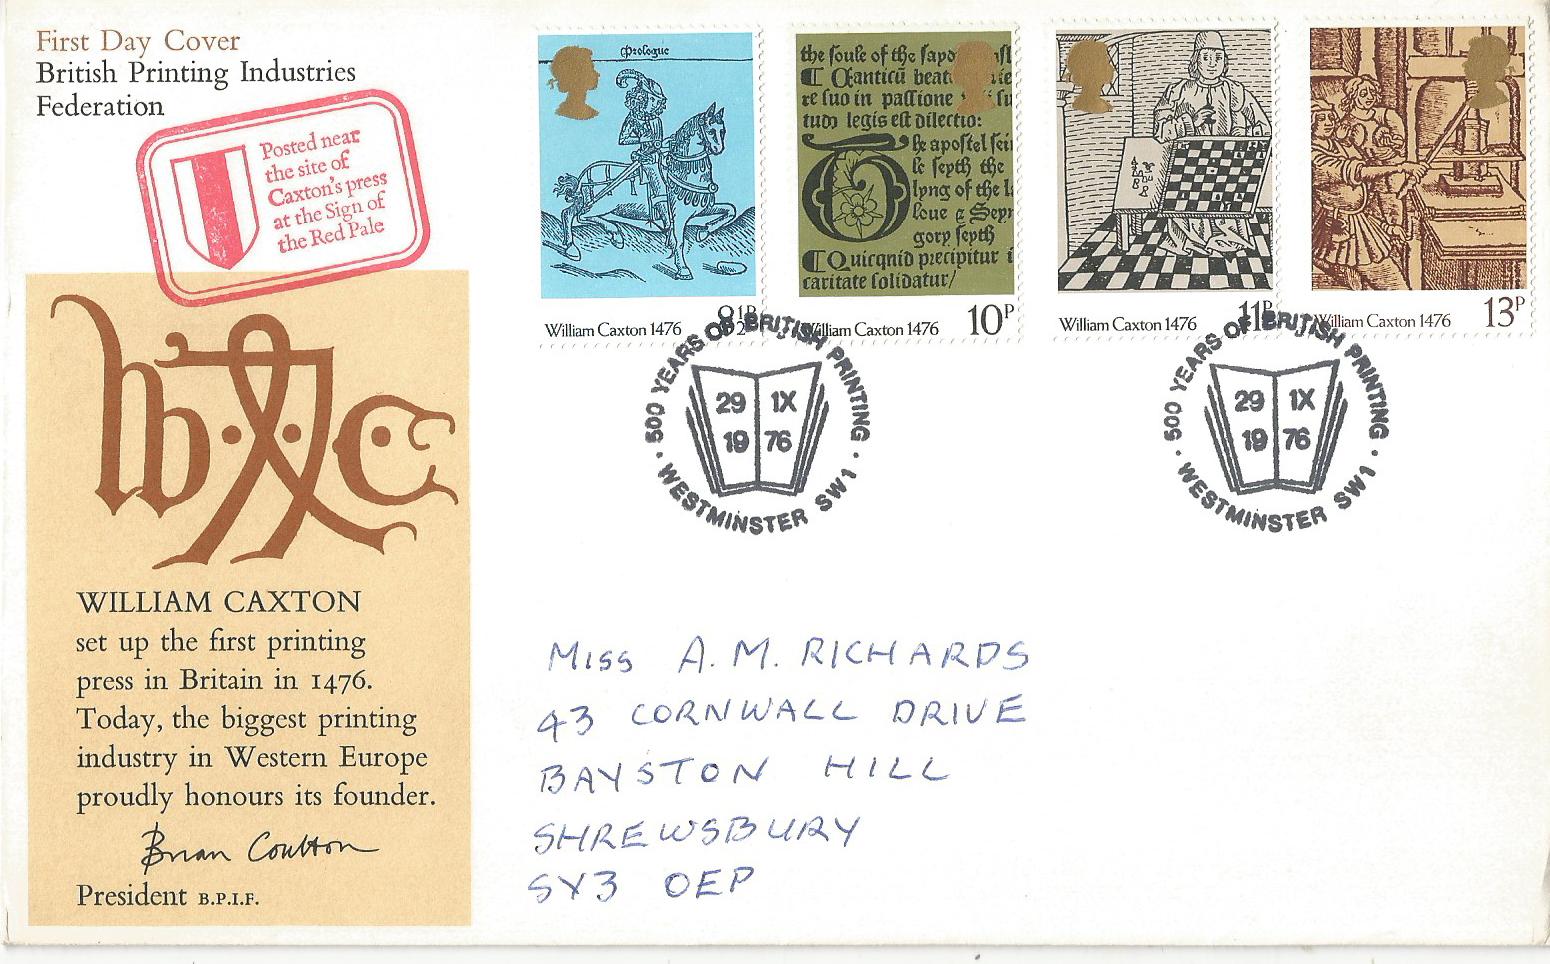 First Day Cover
British Printing Industries
Federation
Posted near
the site of
Caxton's press
at the Sign of
the Red Pale
WILLIAM CAXTON
set up the first printing
press in Britain in 1476.
Today, the biggest printing
industry in Western Europe
proudly honours its founder.
Brian Coulton
President B.P.I.F.
Prologue
William Caxton 1476
8½P
the soule of the sapo
Canticū beat
re suo in passione
tudo legis est dilectio:
he apostel sei
le septh the
lyng of the
loue & Sey
gory septh
Quicqnid precipitur i
caritate solidatur/
William Caxton 1476 10P
William Caxton 1476 11P
William Caxton 1476 13P
500 YEARS OF BRITISH PRINTING
29 IX
19 76
WESTMINSTER SW1
500 YEARS OF BRITISH PRINTING
29 IX
19 76
WESTMINSTER SW1
MISS A.M. RICHARDS
43 CORNWALL DRIVE
BAYSTON HILL
SHREWSBURY
SY3 OEP